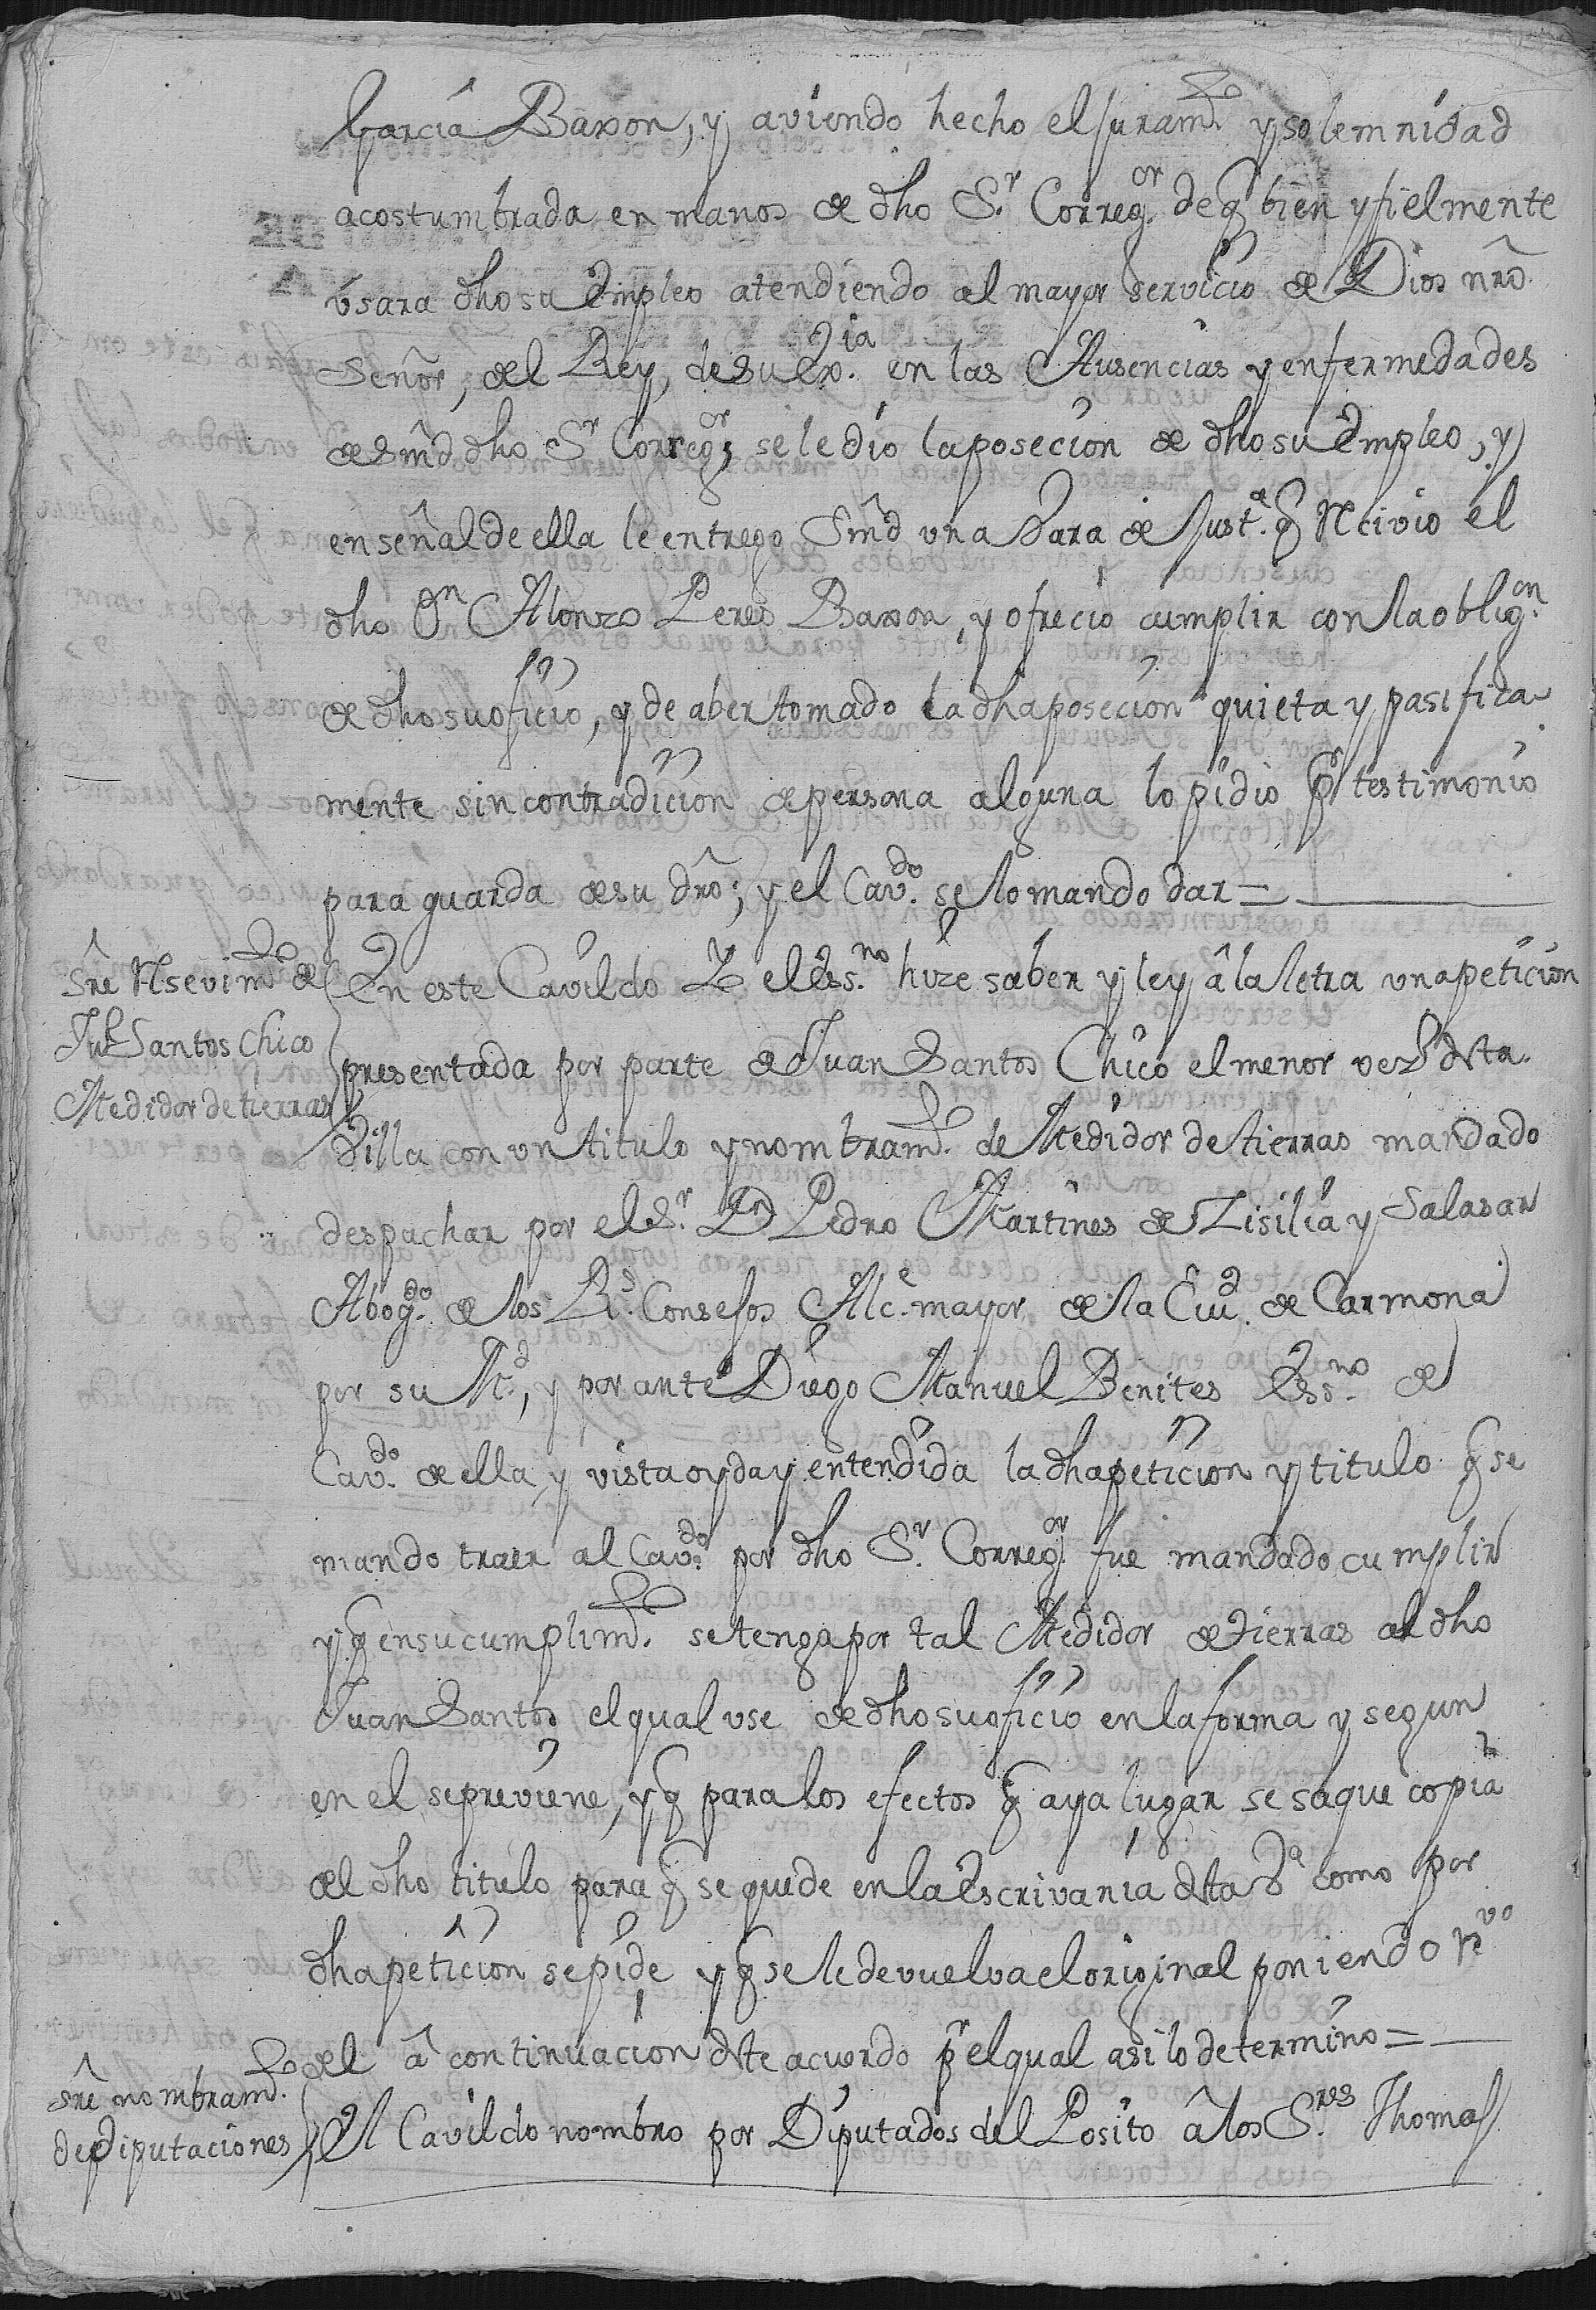 Garcia Baxon, y aviendo hecho el juram.to y solemnidad
acostumbrada en manos de dho S.r Correg.or de q bien y fielmente
vsara dho su Empleo atendiendo al mayor servicio de Dios nrõ.
Señor, del Rey, de su Ex.ia en las Ausencias y enfermedades
de Smd dho S.r Correg.or; se le dio la posecion de dho su Empleo, y
en señal de ella le entrego Smd vna Vara de Just.a q Recivio el
dho Dn Alonzo Peres Baxon, y ofrecio cumplir con la oblig.on
de dho su oficio, y de aber tomado la dha posecion quieta y pasifica
mente sin contradicion de persona alguna lo pidio pr testimonio
para guarda de su drõ; y el Cav.do se lo mando dar =
Sre Resevim.to de
Ju Santos Chico
Medidor de tierras
En este Cavildo Yo el Ess.no hize saber y ley â la letra vna peticion
presentada por parte de Juan Santos Chico el menor vez.o dsta
Villa con vn titulo y nombram.to de Medidor de tierras mandado
despachar por el S.r Dn Pedro Martines de Zisilia y Salasar
Abog.do de los R.s Consejos Alc.e mayor de la Ciu.d de Carmona
por su M.d, y por ante Diego Manuel Benites Ess.no de
Cav.do de ella, y vista oyda y entendida la dha peticion y titulo q se
mando traer al Cav.do por dho S.r Correg.or fue mandado cumplir
y q en su cumplim.to se tenga por tal Medidor de tierras al dho
Juan Santos el qual vse de dho su oficio en la forma y segun
en el se previene, y q para los efectos q aya lugar se saque copia
del dho titulo para q se quede en la Escrivania dsta V.a como por
dha peticion se pide y q se le devuelva el original poniendo R.vo
del â continuacion dste acuerdo pr el qual asi lo determino =
Sre nombram.to
de Diputaciones
El Cavildo nombro por Diputados del Posito â los S.res Thomas